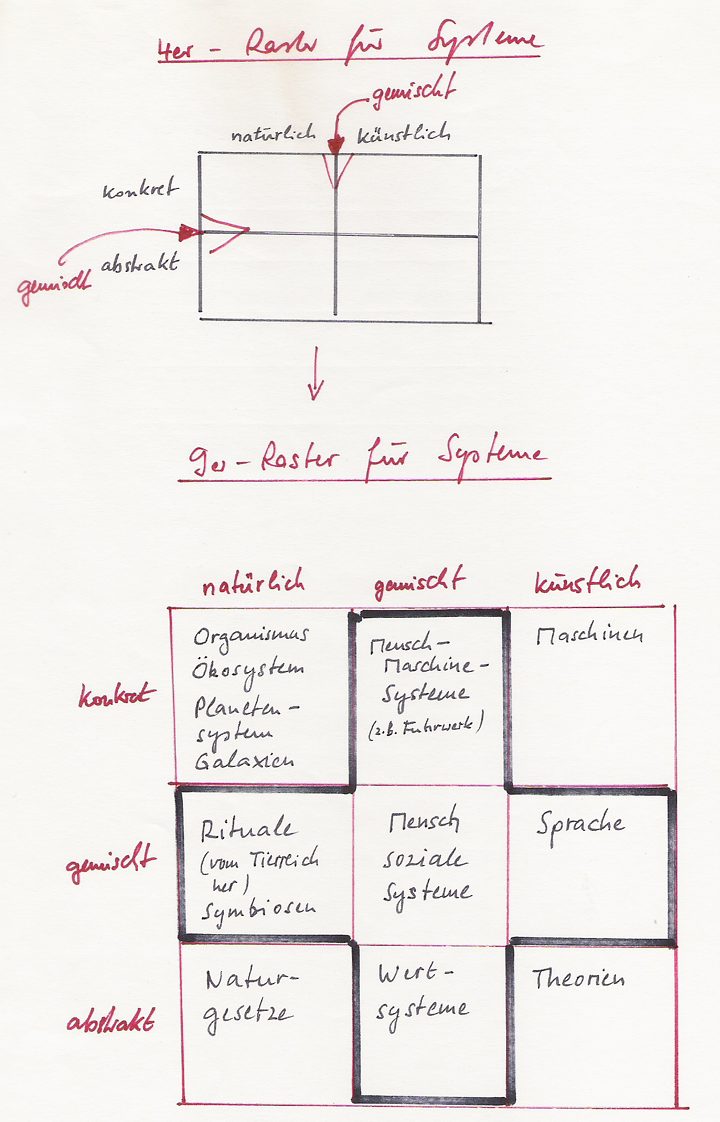 4er - Raster für Systeme
gemischt
natürlich künstlich
konkret
abstrakt
gemischt
9er - Raster für Systeme
natürlich gemischt künstlich
konkret
Organismus
Ökosystem
Planeten-
system
Galaxien
Mensch-
Maschine-
Systeme
(z.B. Fuhrwerk)
Maschinen
gemischt
Rituale
(vom Tierreich
her)
Symbiosen
Mensch
soziale
Systeme
Sprache
abstrakt
Natur-
gesetze
Wert-
systeme
Theorien